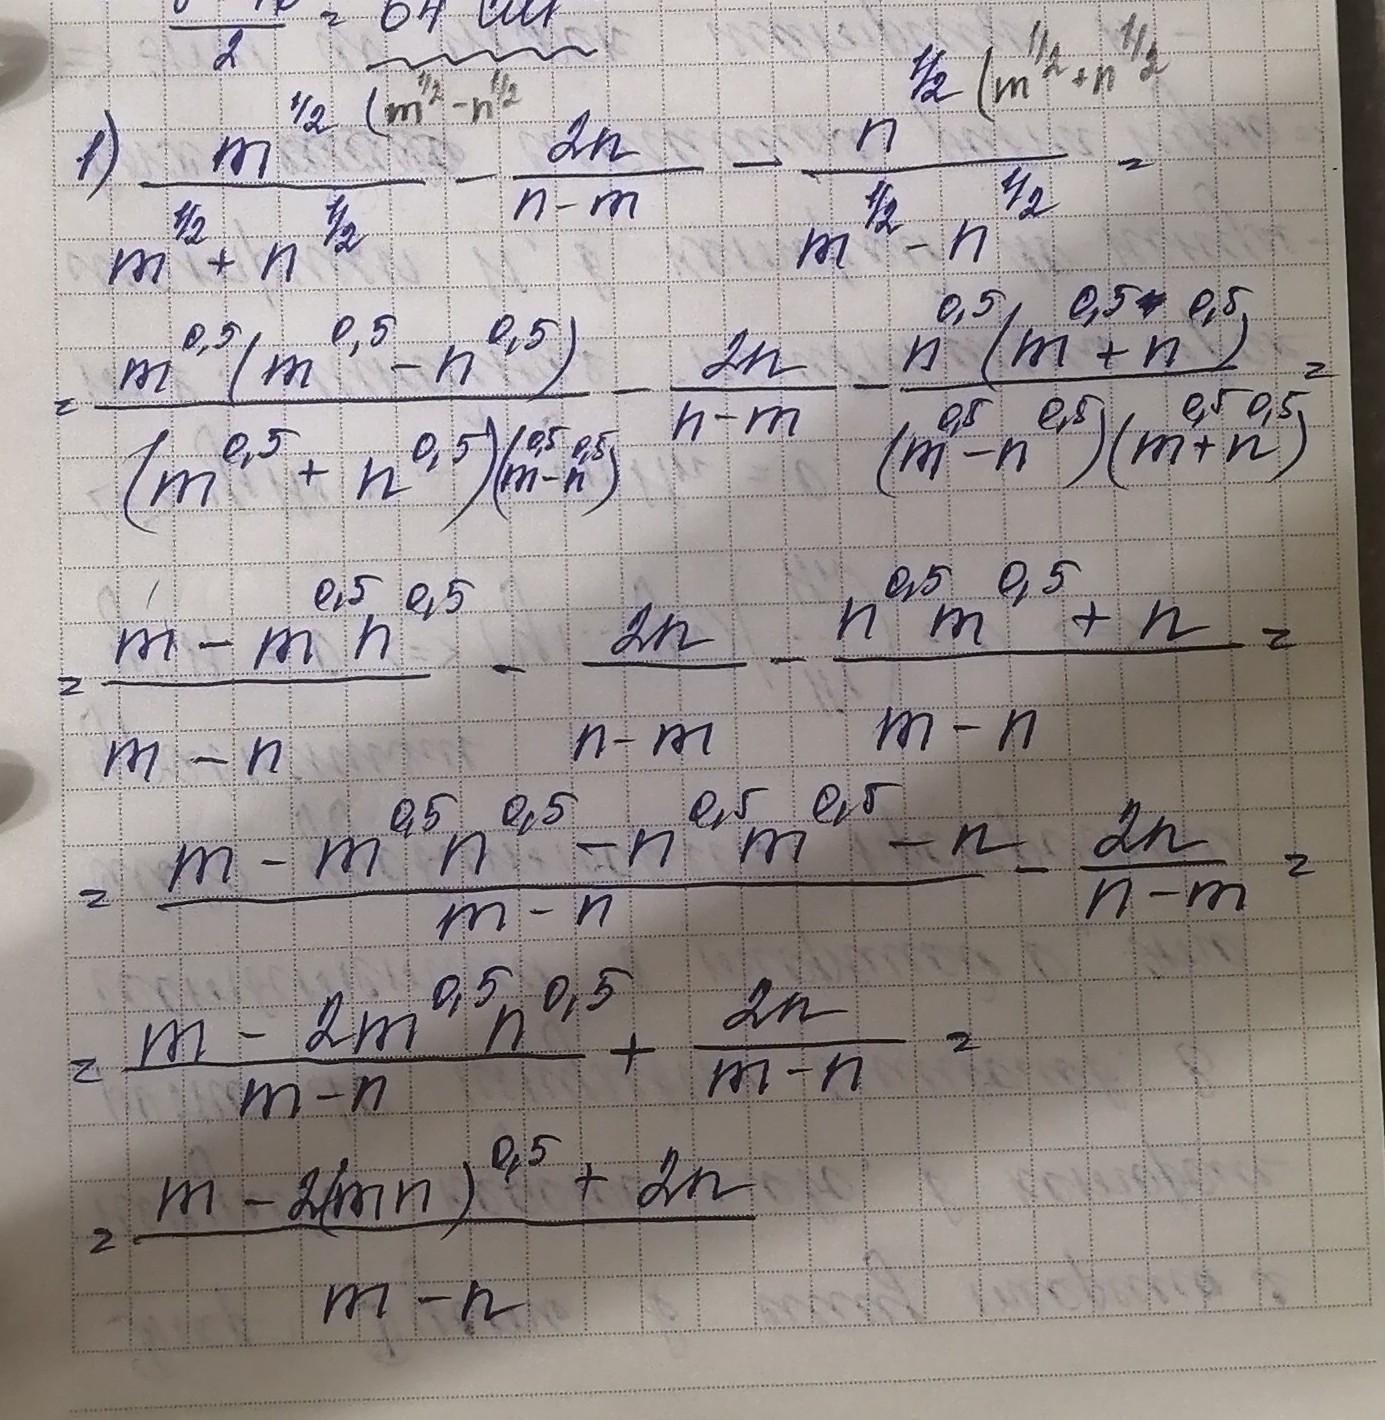 2 = 64 см
1) m^1/2 (m^1/2 - n^1/2 / m^1/2 + n^1/2 - 2n / n - m - n^1/2 (m^1/2 + n^1/2 / m^1/2 - n^1/2 =
= m^0,5 (m^0,5 - n^0,5) / (m^0,5 + n^0,5)(m^0,5 - n^0,5) - 2n / n - m - n^0,5 (m^0,5 + n^0,5) / (m^0,5 - n^0,5)(m^0,5 + n^0,5) =
= m - m^0,5 n^0,5 / m - n - 2n / n - m - n^0,5 m^0,5 + n / m - n =
= m - m^0,5 n^0,5 - n^0,5 m^0,5 - n / m - n - 2n / n - m =
= m - 2m^0,5 n^0,5 / m - n + 2n / m - n =
= m - 2(mn)^0,5 + 2n / m - n